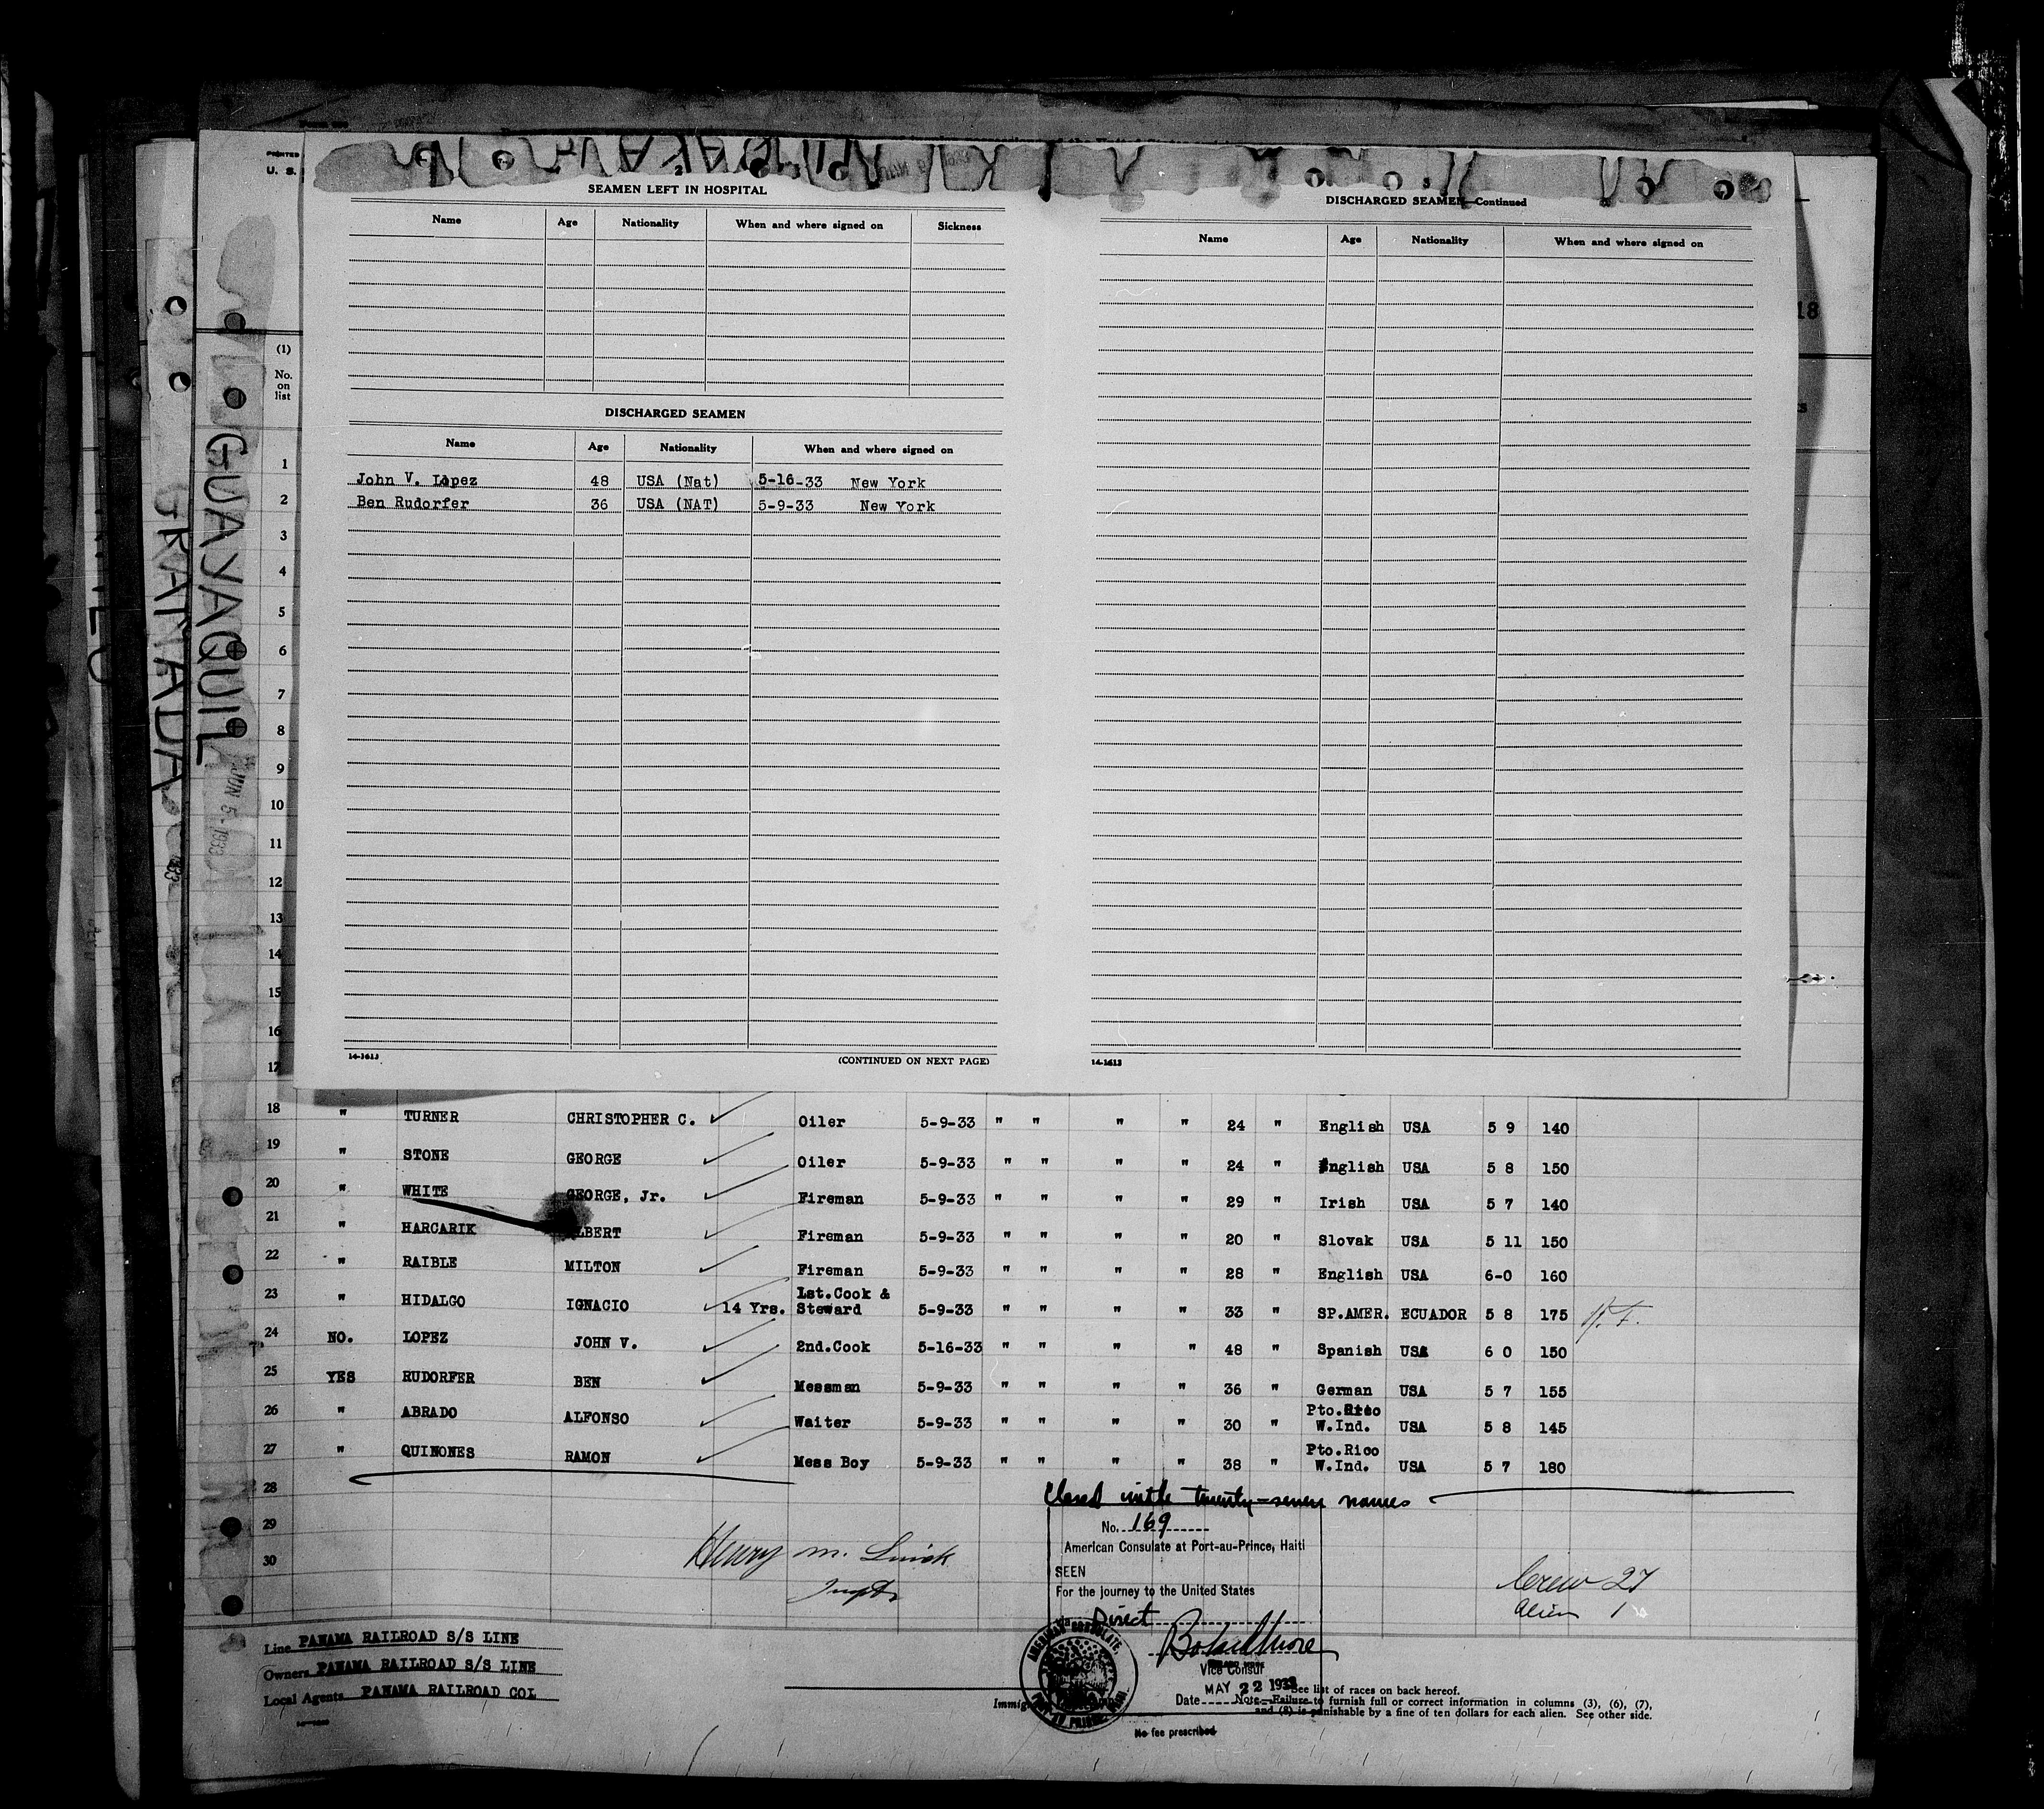 PRINTED
U. S.
(1)
No.
on
list
GUAYAQUIL
JUN 5 - 1933
GRANADA
18
2
SEAMEN LEFT IN HOSPITAL
Name Age Nationality When and where signed on Sickness
DISCHARGED SEAMEN
Name Age Nationality When and where signed on
John V. Lopez 48 USA (Nat) 5-16-33 New York
Ben Rudorfer 36 USA (NAT) 5-9-33 New York
14-1613
(CONTINUED ON NEXT PAGE)
3
DISCHARGED SEAMEN—Continued
Name Age Nationality When and where signed on
14-1613
1
2
3
4
5
6
7
8
9
10
11
12
13
14
15
16
17
18 " TURNER CHRISTOPHER C. Oiler 5-9-33 " " " " 24 " English USA 5 9 140
19 " STONE GEORGE Oiler 5-9-33 " " " " 24 " English USA 5 8 150
20 " WHITE GEORGE, Jr. Fireman 5-9-33 " " " " 29 " Irish USA 5 7 140
21 " HARCARIK ALBERT Fireman 5-9-33 " " " " 20 " Slovak USA 5 11 150
22 " RAIBLE MILTON Fireman 5-9-33 " " " " 28 " English USA 6-0 160
23 " HIDALGO IGNACIO 14 Yrs. 1st.Cook & Steward 5-9-33 " " " " 33 " SP.AMER. ECUADOR 5 8 175
24 NO. LOPEZ JOHN V. 2nd.Cook 5-16-33 " " " " 48 " Spanish USA 6 0 150
25 YES RUDORFER BEN Messman 5-9-33 " " " " 36 " German USA 5 7 155
26 " ABRADO ALFONSO Waiter 5-9-33 " " " " 30 " Pto.Rico W.Ind. USA 5 8 145
27 " QUINONES RAMON Mess Boy 5-9-33 " " " " 38 " Pto.Rico W.Ind. USA 5 7 180
28
29
30
Closed with twenty-seven names
No. 169
American Consulate at Port-au-Prince, Haiti
SEEN
For the journey to the United States
via Direct
Vice Consul
Date MAY 22 1933
No fee prescribed
AMERICAN CONSULATE
Henry M.
Crew 27
Alien 1
Line PANAMA RAILROAD S/S LINE
Owners PANAMA RAILROAD S/S LINE
Local Agents PANAMA RAILROAD CO.
See list of races on back hereof.
Note.—Failure to furnish full or correct information in columns (3), (6), (7),
and (8) is punishable by a fine of ten dollars for each alien. See other side.